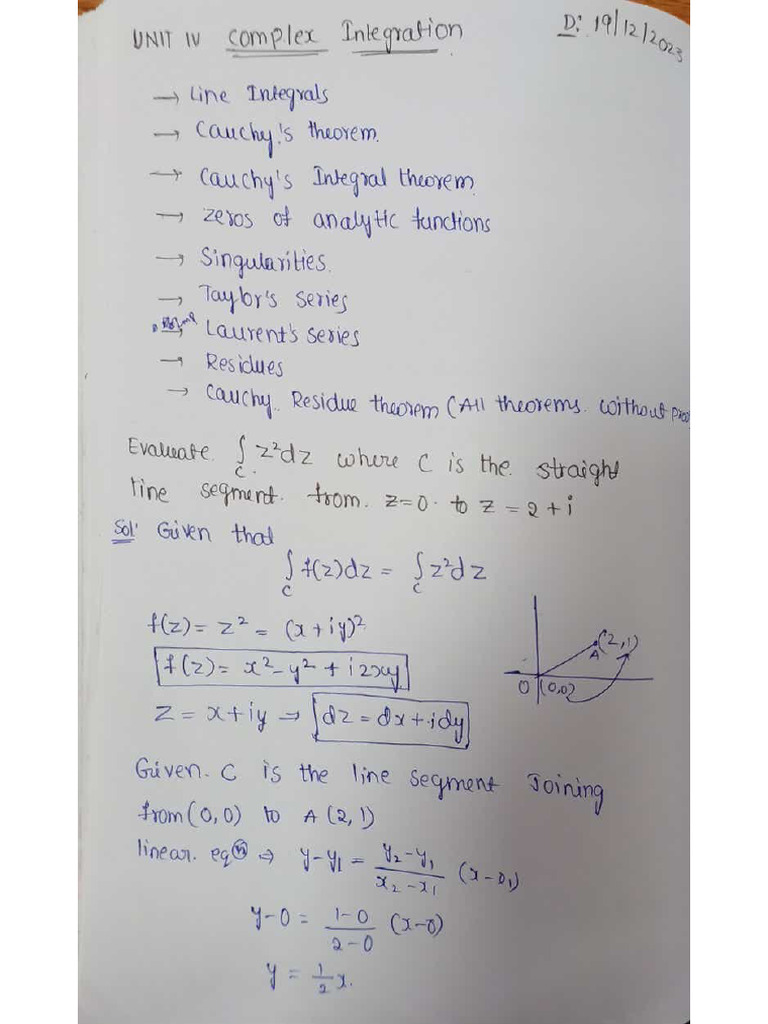 UNIT IV Complex Integration D: 19/12/2023
→ Line Integrals
→ Cauchy's theorem.
→ Cauchy's Integral theorem
→ Zeros of analytic functions
→ Singularities.
→ Taylor's series
→ Laurent's series
→ Residues
→ Cauchy. Residue theorem (All theorems. without
Evaluate ∫_C z²dz where C is the straight
line segment. from. z=0. to z = 2+i
Sol' Given that
∫_C f(z)dz = ∫_C z²dz
f(z) = z² = (x+iy)²
f(z) = x²-y² + i2xy
z = x+iy → dz = dx+idy
A (2,1)
O (0,0)
Given. C is the line segment Joining
from (0,0) to A (2,1)
linear. eqn ⇒ y-y₁ = (y₂-y₁)/(x₂-x₁) (x-x₁)
y-0 = (1-0)/(2-0) (x-0)
y = 1/2 x.